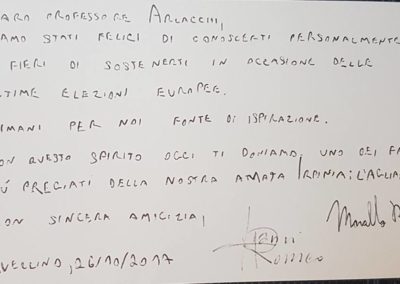 ARO PROFESSORE ARLACCHI,
AMO STATI FELICI DI CONOSCERTI PERSONALMENTE
FIERI DI SOSTENERTI IN OCCASIONE DELLE
TIME ELEZIONI EUROPEE.
IMANI PER NOI FONTE DI ISPIRAZIONE.
ON QUESTO SPIRITO OGGI TI DONIAMO UNO DEI
Ù PREGIATI DELLA NOSTRA AMATA IRPINIA: L'AGLIA
ON SINCERA AMICIZIA,
VELLINO, 26/10/2017